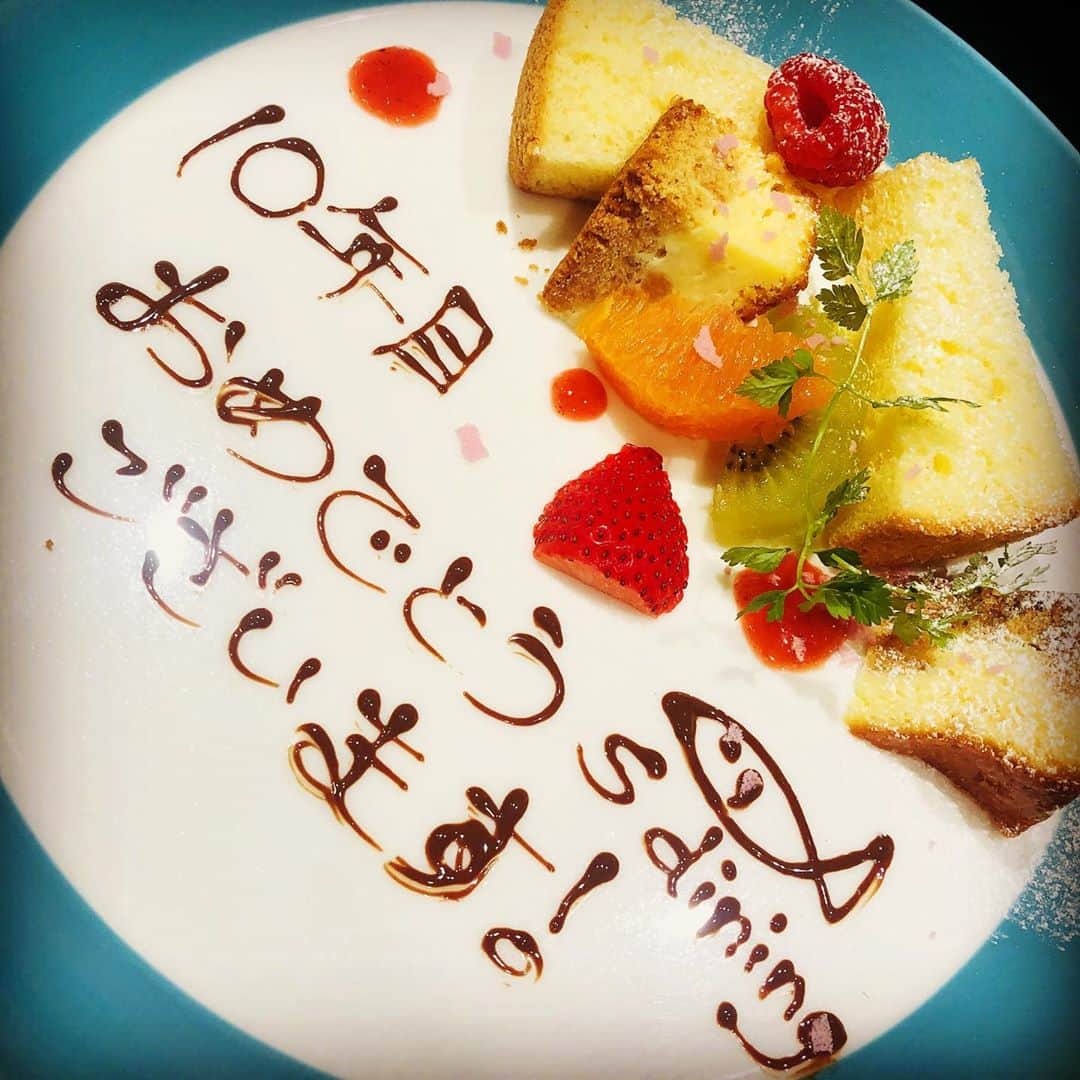 10年目
おめでとう
ございます!。
s dining